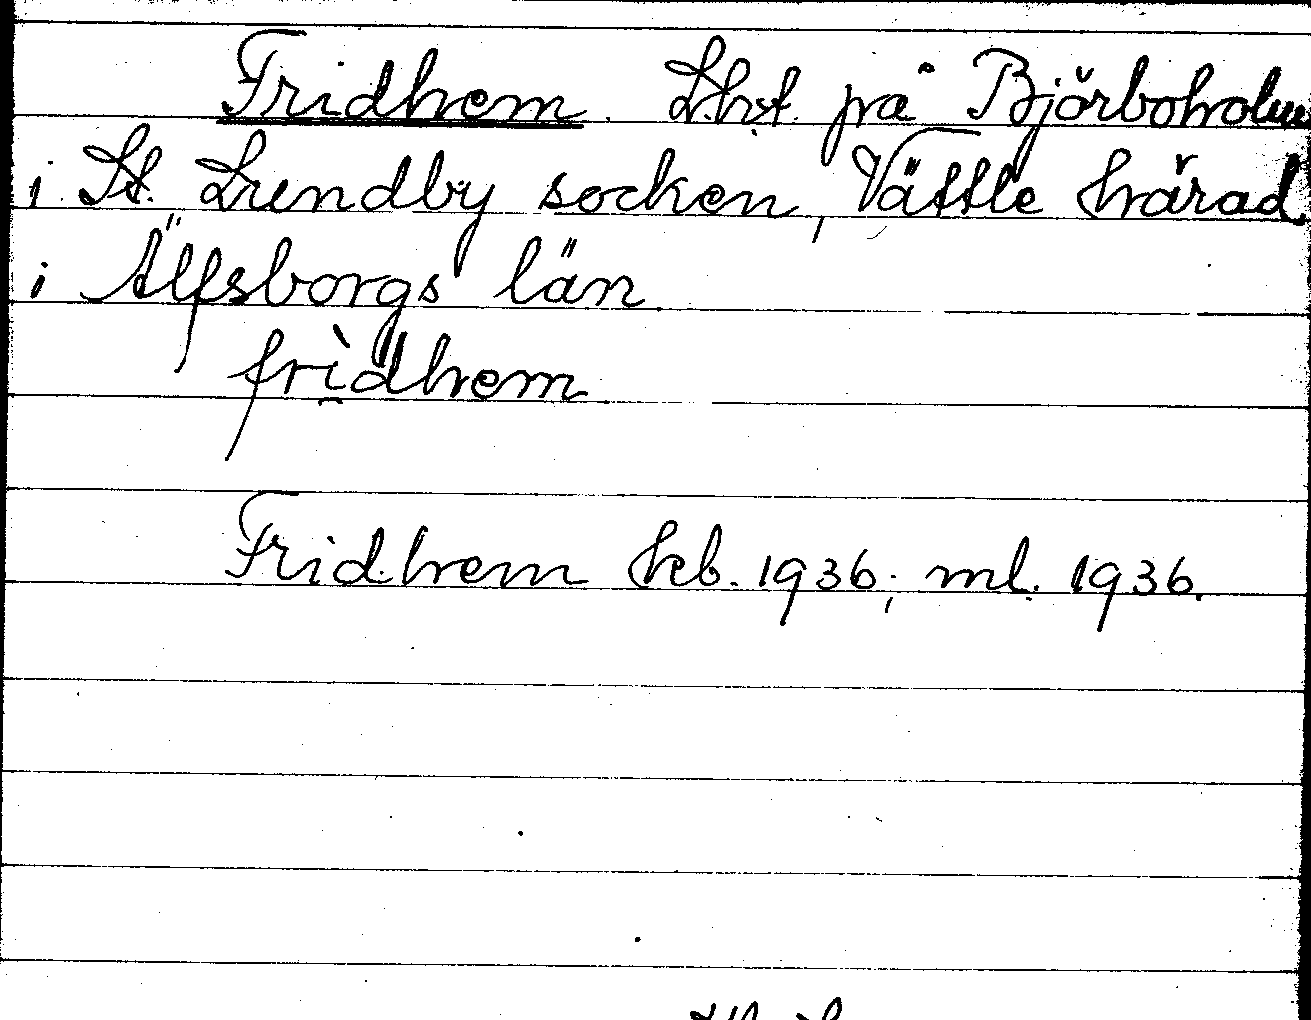 Fridhem. Lht. på Björboholm
i St. Lundby socken, Vättle härad
i Älfsborgs län
frìdhem
Fridhem hcb. 1936; ml. 1936.